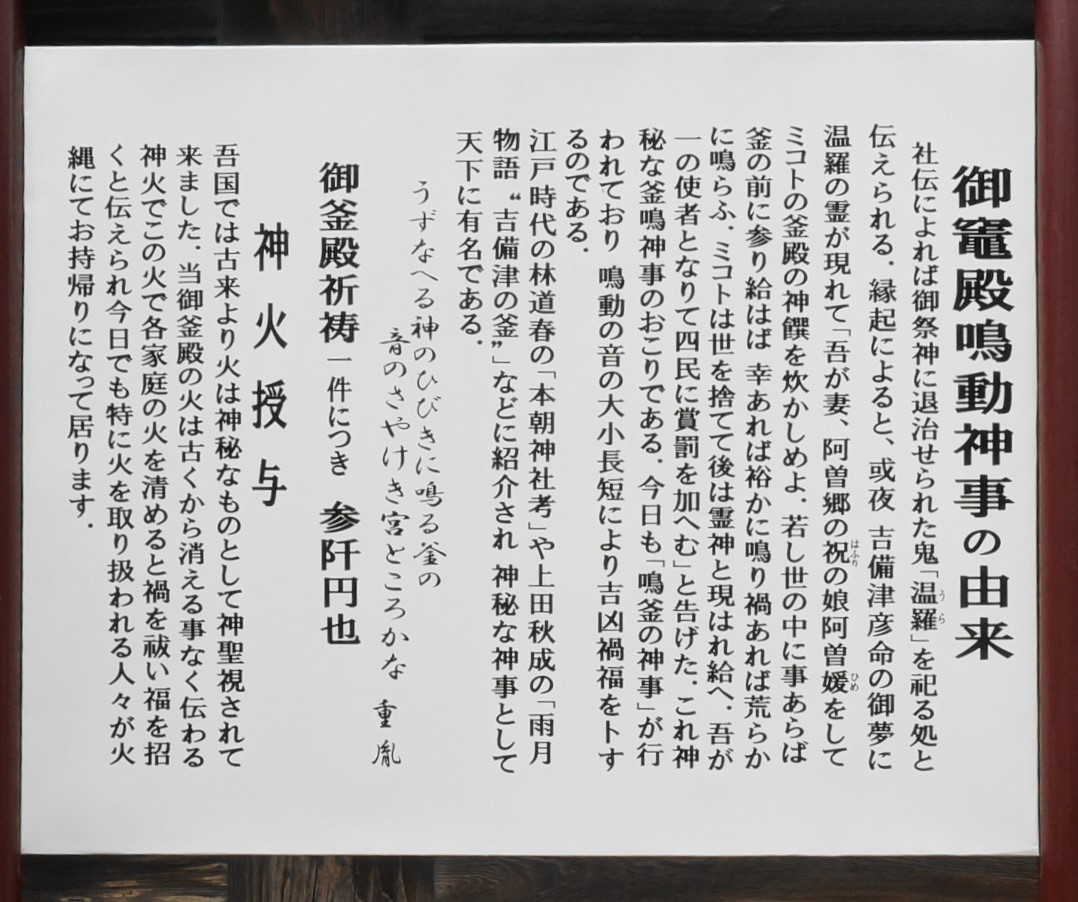 御竈殿鳴動神事の由来
社伝によれば御祭神に退治せられた鬼「温羅」を祀る処と
うら
伝えられる．縁起によると、或夜 吉備津彦命の御夢に
温羅の霊が現れて「吾が妻、阿曽郷の祝の娘阿曽媛をして
はふり
ひめ
ミコトの釜殿の神饌を炊かしめよ．若し世の中に事あらば
釜の前に参り給はば 幸あれば裕かに鳴り禍あれば荒らか
に鳴らふ．ミコトは世を捨てて後は霊神と現はれ給へ．吾が
一の使者となりて四民に賞罰を加へむ」と告げた．これ神
秘な釜鳴神事のおこりである．今日も「鳴釜の神事」が行
われており 鳴動の音の大小長短により吉凶禍福を卜す
るのである．
江戸時代の林道春の「本朝神社考」や上田秋成の「雨月
物語“吉備津の釜”」などに紹介され 神秘な神事として
天下に有名である．
うずなへる神のひびきに鳴る釜の
音のさやけき宮ところかな 重胤
御釜殿祈祷 一件につき 参阡円也
神火授与
吾国では古来より火は神秘なものとして神聖視されて
来ました．当御釜殿の火は古くから消える事なく伝わる
神火でこの火で各家庭の火を清めると禍を祓い福を招
くと伝えられ今日でも特に火を取り扱われる人々が火
縄にてお持帰りになって居ります．